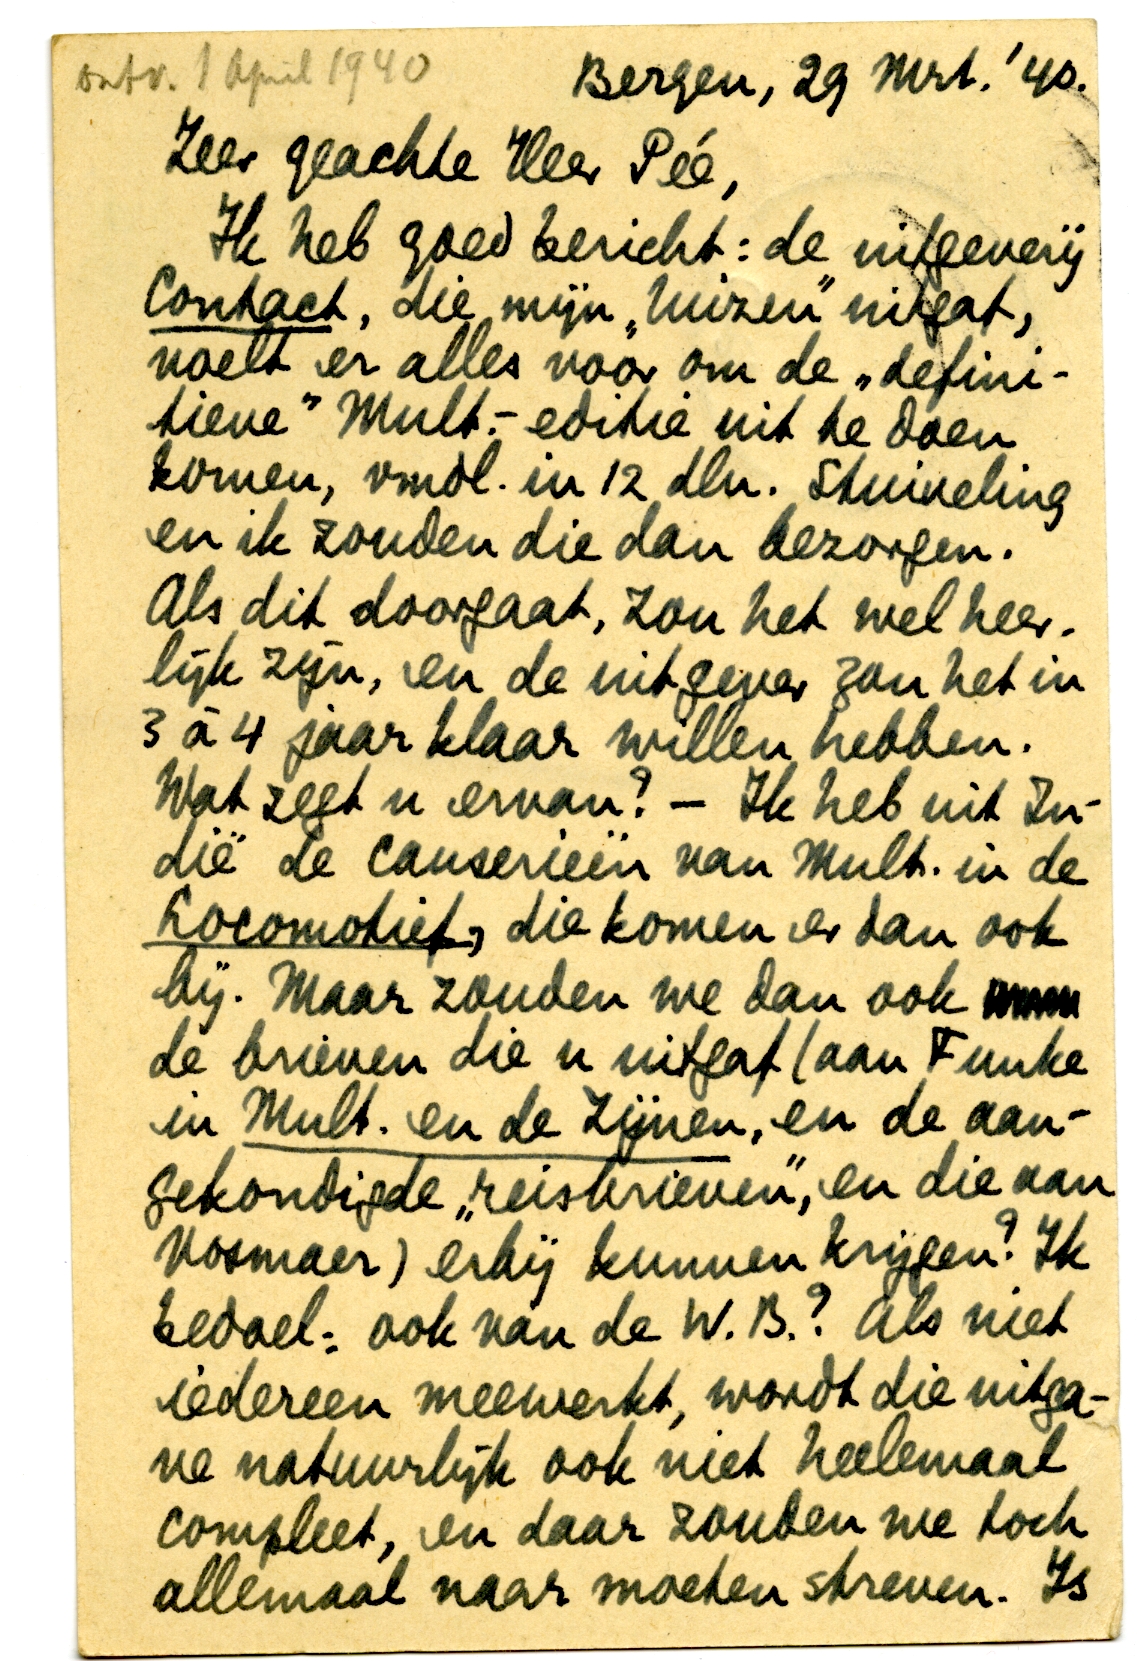 ontv. 1 April 1940
Bergen, 29 Mrt. '40.
Zeer geachte Heer Pée,
Ik heb goed bericht: de uitgeverij
Contact, die mijn „Luizen” uitgaf,
voelt er alles voor om de „defini-
tieve” Mult.-editie uit te doen
komen, vmdl. in 12 dln. Stuiveling
en ik zouden die dan bezorgen.
Als dit doorgaat, zou het wel heer-
lijk zijn, en de uitgever zou het in
3 à 4 jaar klaar willen hebben.
Wat zegt u ervan? — Ik heb uit In-
dië de causerieën van Mult. in de
Locomotief, die komen er dan ook
bij. Maar zouden we dan ook
de brieven die u uitgaf (aan Funke
in Mult. en de Zijnen, en de aan-
gekondigde „reisbrieven”, en die aan
Vosmaer) erbij kunnen krijgen? Ik
bedoel: ook van de W.B.? Als niet
iedereen meewerkt, wordt die uitga-
ve natuurlijk ook niet heelemaal
compleet, en daar zouden we toch
allemaal naar moeten streven. Is